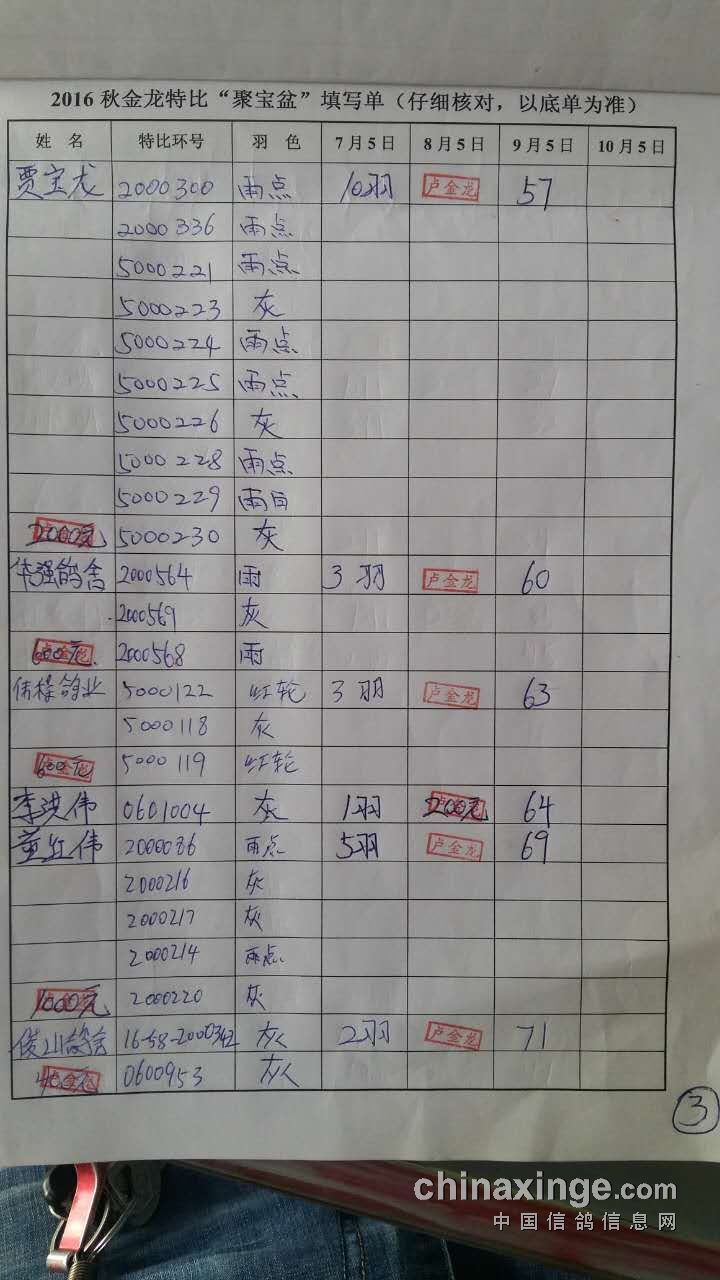 2016秋金龙特比“聚宝盆”填写单（仔细核对，以底单为准）
姓 名 特比环号 羽 色 7月5日 8月5日 9月5日 10月5日
贾宝龙 2000300 雨点 10羽 卢金龙 57
2000336 雨点
5000221 雨点
5000223 灰
5000224 雨点
5000225 雨点
5000226 灰
5000228 雨点
5000229 雨白
2000元 5000230 灰
华强鸽舍 2000564 雨 3羽 卢金龙 60
2000569 灰
600元 卢金龙 2000568 雨
鸽业 5000122 红轮 3羽 卢金龙 63
5000118 灰
600元 卢金龙 5000119 红轮
李洪伟 0601004 灰 1羽 200元 64
董红伟 2000086 雨点 5羽 卢金龙 69
2000216 灰
2000217 灰
2000214 雨点
1000元 2000220 灰
俊山鸽舍 16-58-2000342 灰 2羽 卢金龙 71
卢金龙 0600953 灰
3
chinaxinge.com
中国信鸽信息网